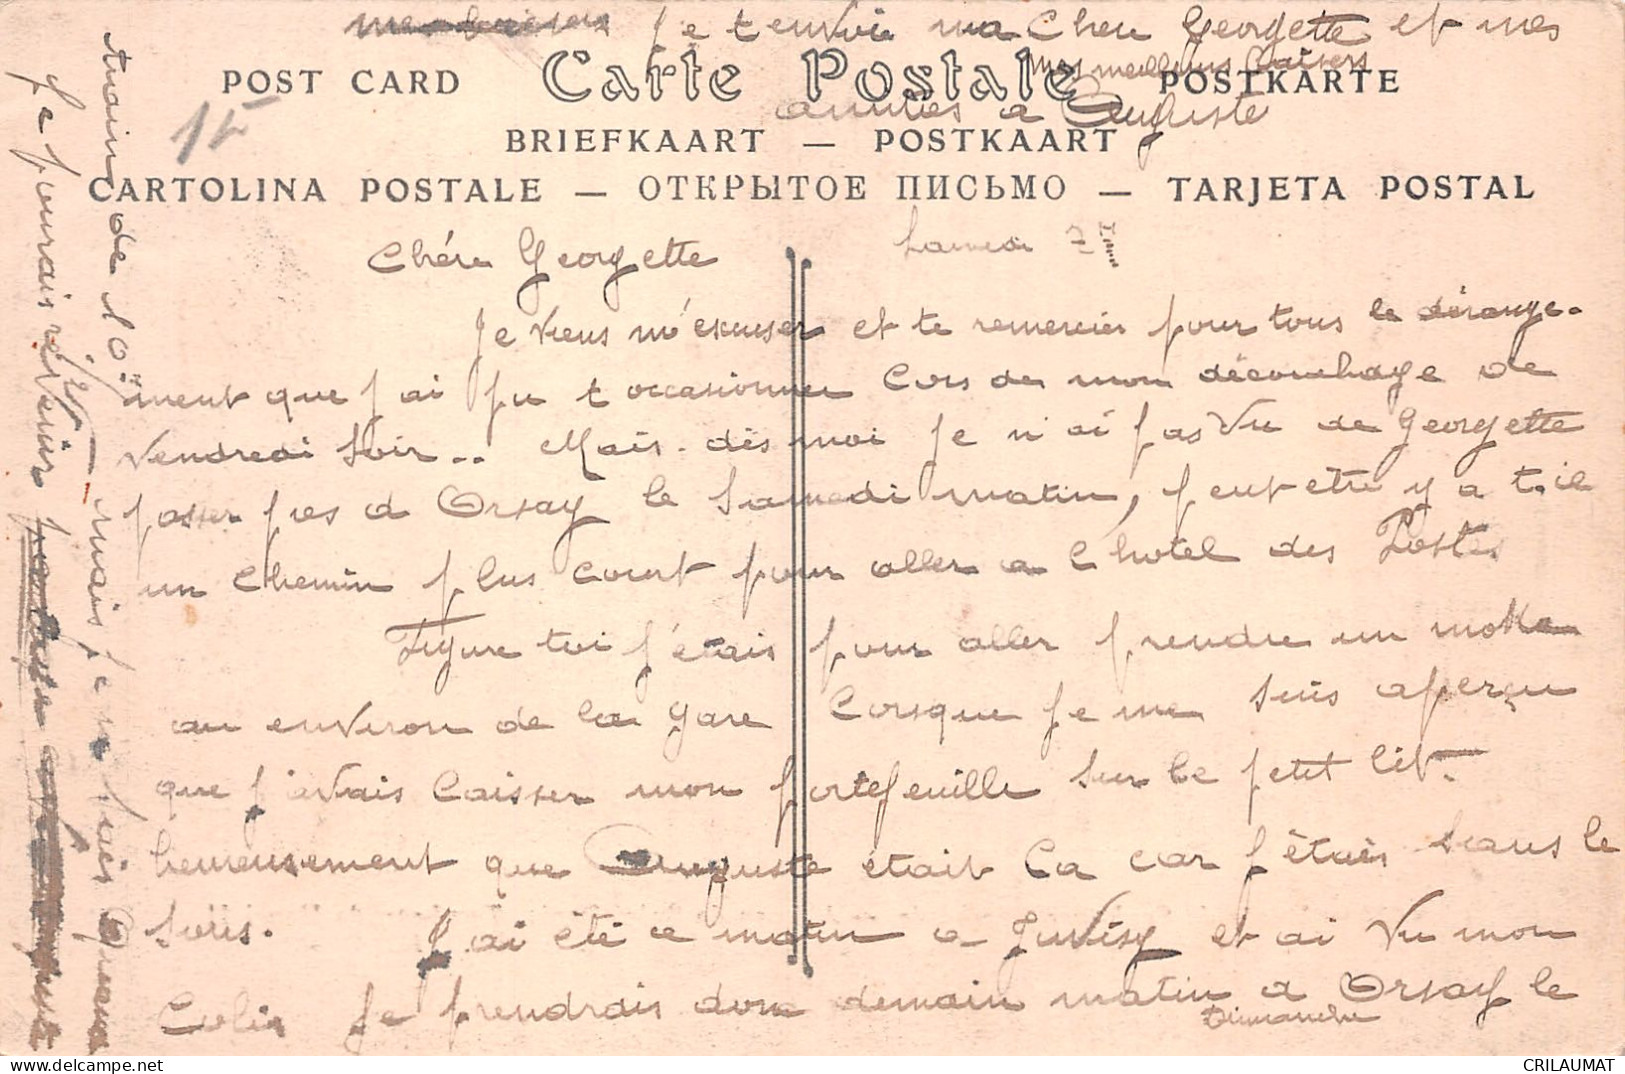 Je t envoie ma Cher Georgette et mes
mes meilleurs Baisers
POST CARD Carte Postale POSTKARTE
amitiés a Auguste
BRIEFKAART — POSTKAART
CARTOLINA POSTALE — ОТКРЫТОЕ ПИСЬМО — TARJETA POSTAL
Samedi
Chére Georgette
Je viens m'exuser et te remercier pour tous le dérange-
ment que j ai pu t occasionner Cors de mon découchage de
Vendredi Soir.. Mais dès moi je n'ai pas Vu de Georgette
passer pres d Orsay le Samedi matin, peut etre y a t.il
un Chemin plus court pour aller a l hotel des Postes
Figure toi j'étais pour aller prendre un
au environ de la gare Corsque je me suis aperçu
que j'avais Caisser mon portefeuille sur le petit lit.
heureusement que Auguste etait La car j'étais Sans le
Sous. J'ai été ce matin a Juvisy et ai Vu mon
Colis Je prendrais donc demain matin a Orsay le
Dimanche
train de 10h25 mais je ne suis
Je pourrais revenir
CRILAUMAT